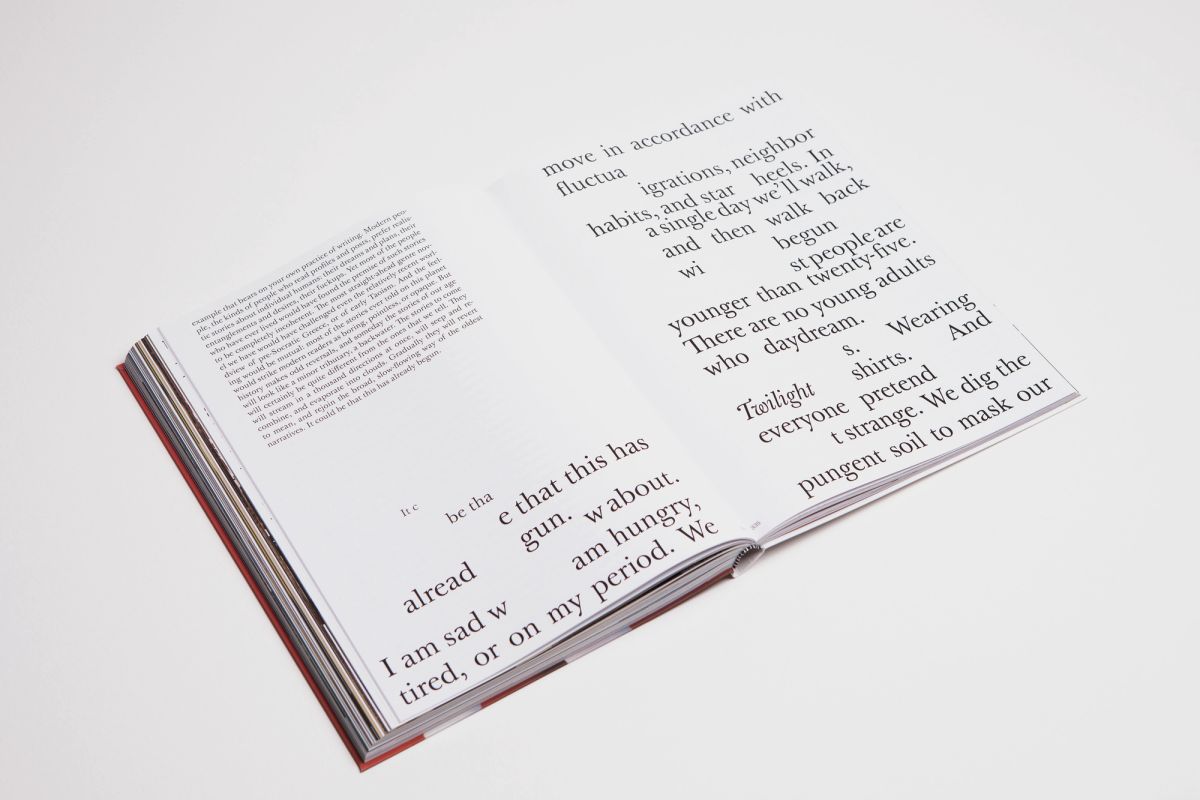 example that bears on your own practice of writing. Modern peo-
ple, the kinds of people who read profiles and posts, prefer realis-
tic stories about individual humans: their dreams and plans, their
entanglements and desires, their fuckups. Yet most of the people
who have ever lived would have found the premise of such stories
to be completely incoherent. The most straight-ahead genre nov-
el we have would have challenged even the relatively recent worl-
dview of pre-Socratic Greece, or of early Taoism. And the feel-
ing would be mutual: most of the stories ever told on this planet
would strike modern readers as boring, pointless, or opaque. But
history makes odd reversals, and someday the stories of our age
will look like a minor tributary, a backwater. The stories to come
will certainly be quite different from the ones that we tell. They
will stream in a thousand directions at once, will seep and re-
combine, and evaporate into clouds. Gradually they will revert
to mean, and rejoin the broad, slow-flowing way of the oldest
narratives. It could be that this has already begun.
It c be tha e that this has
alread gun. w about.
I am sad w am hungry,
tired, or on my period. We
move in accordance with
fluctua igrations, neighbor
habits, and star heels. In
a single day we'll walk,
and then walk back
wi begun
st people are
younger than twenty-five.
There are no young adults
who daydream.
s. Wearing
Twilight shirts. And
everyone pretend
t strange. We dig the
pungent soil to mask our